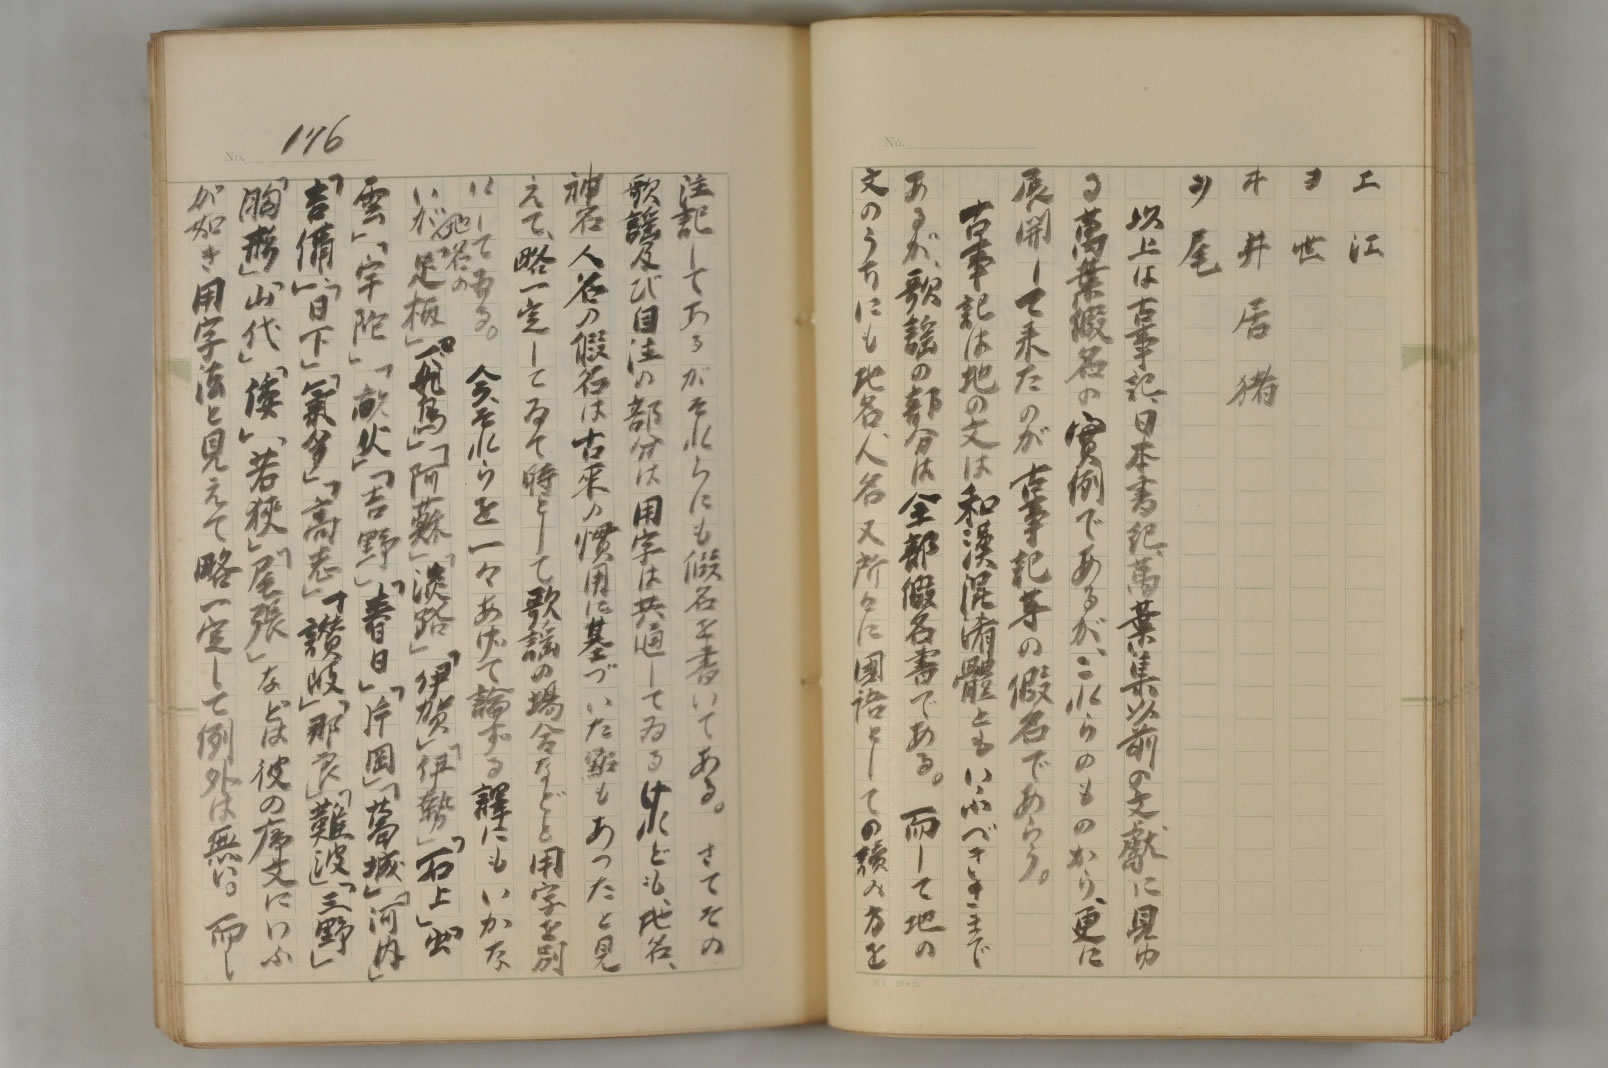 エ 江
ヨ 世
ヰ 井 居 猪
ヲ 尾
以上は古事記、日本書紀、萬葉集以前の文獻に見ゆ
る萬葉假名の實例であるが、これらのものから、更に
展開して來たのが古事記等の假名であらう。
古事記は地の文は和漢混淆體ともいふべき
あるが、歌謠の部分は全部假名書である。而して地の
文のうちにも地名人名又所々に國語としての讀み方を
No.
注記してあるがそれらにも假名を書いてある。さてその
歌謠及び自注の部分は用字は共通してゐるけれども、地名、
神名人名の假名は古來の慣用に基づいた點もあつたと見
えて、略一定してゐて時として歌謠の場合などと用字を別
にしてゐる。今、それらを一々あげて論ずる譯にもいかな
いが、地名の「足柄」「飛鳥」「阿蘇」「淡路」「伊賀」「伊勢」「石上」「出
雲」「宇陀」「畝火」「吉野」「春日」「片岡」「葛城」「河內」
「吉備」「日下」「氣多」「高志」「讃岐」「那良」「難波」「三野」
「胸形」「山代」「倭」「若狹」「尾張」などは彼の序文にいふ
が如き用字法と見えて略一定して例外は無い。而し
No. 176